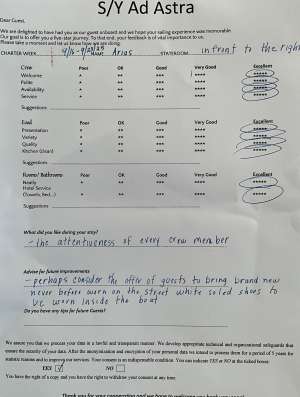 S/Y Ad Astra
Dear Guest,
We are delighted to have had you as our guest onboard and we hope your sailing experience was memorable.
Our goal is to offer you a five-star journey. To that end, your feedback is of vital importance to us.
Please take a moment and let us know how we are doing:
CHARTER WEEK NAME Arias STATEROOM in front to the right
Crew Poor OK Good Very Good Excellent
Welcome * ** *** **** *****
Polite * ** *** **** *****
Availability * ** *** **** *****
Service * ** *** **** *****
Suggestions
Food Poor OK Good Very Good Excellent
Presentation * ** *** **** *****
Variety * ** *** **** *****
Quality * ** *** **** *****
Kitchen (clean) * ** *** **** *****
Suggestions
Rooms/ Bathrooms Poor OK Good Very Good Excellent
Ready * ** *** **** *****
Hotel Service
(Towels, Bed...) * ** *** **** *****
Suggestions
What did you like during your stay?
- the attentiveness of every crew member
Advise for future improvements
- perhaps consider the offer of guests to bring brand new
never before worn on the street white soled shoes to
be worn inside the boat
Do you have any tips for future Guests?
We assure you that we process your data in a lawful and transparent manner. We develop appropriate technical and organizational safeguards that
ensure the security of your data. After the anonymization and encryption of your personal data we intend to process them for a period of 5 years for
statistic reasons and to improve our services. Your consent is an indispensable condition. You can indicate YES or NO at the ticked boxes:
YES NO
You have the right of a copy and you have the right to withdraw your consent at any time.
Thank you for your cooperation and we hope to